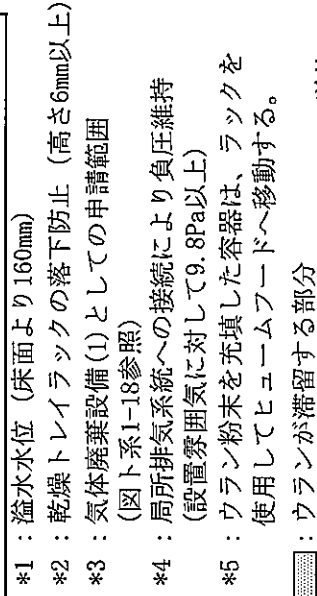 *1：溢水水位（床面より160mm）
*2：乾燥トレイラックの落下防止（高さ6mm以上）
*3：気体廃棄設備(1)としての申請範囲
（図ト系1-18参照）
*4：局所排気系統への接続により負圧維持
（設置雰囲気に対して9.8Pa以上）
*5：ウラン粉末を充填した容器は、ラックを
使用してヒュームフードへ移動する。
：ウランが滞留する部分